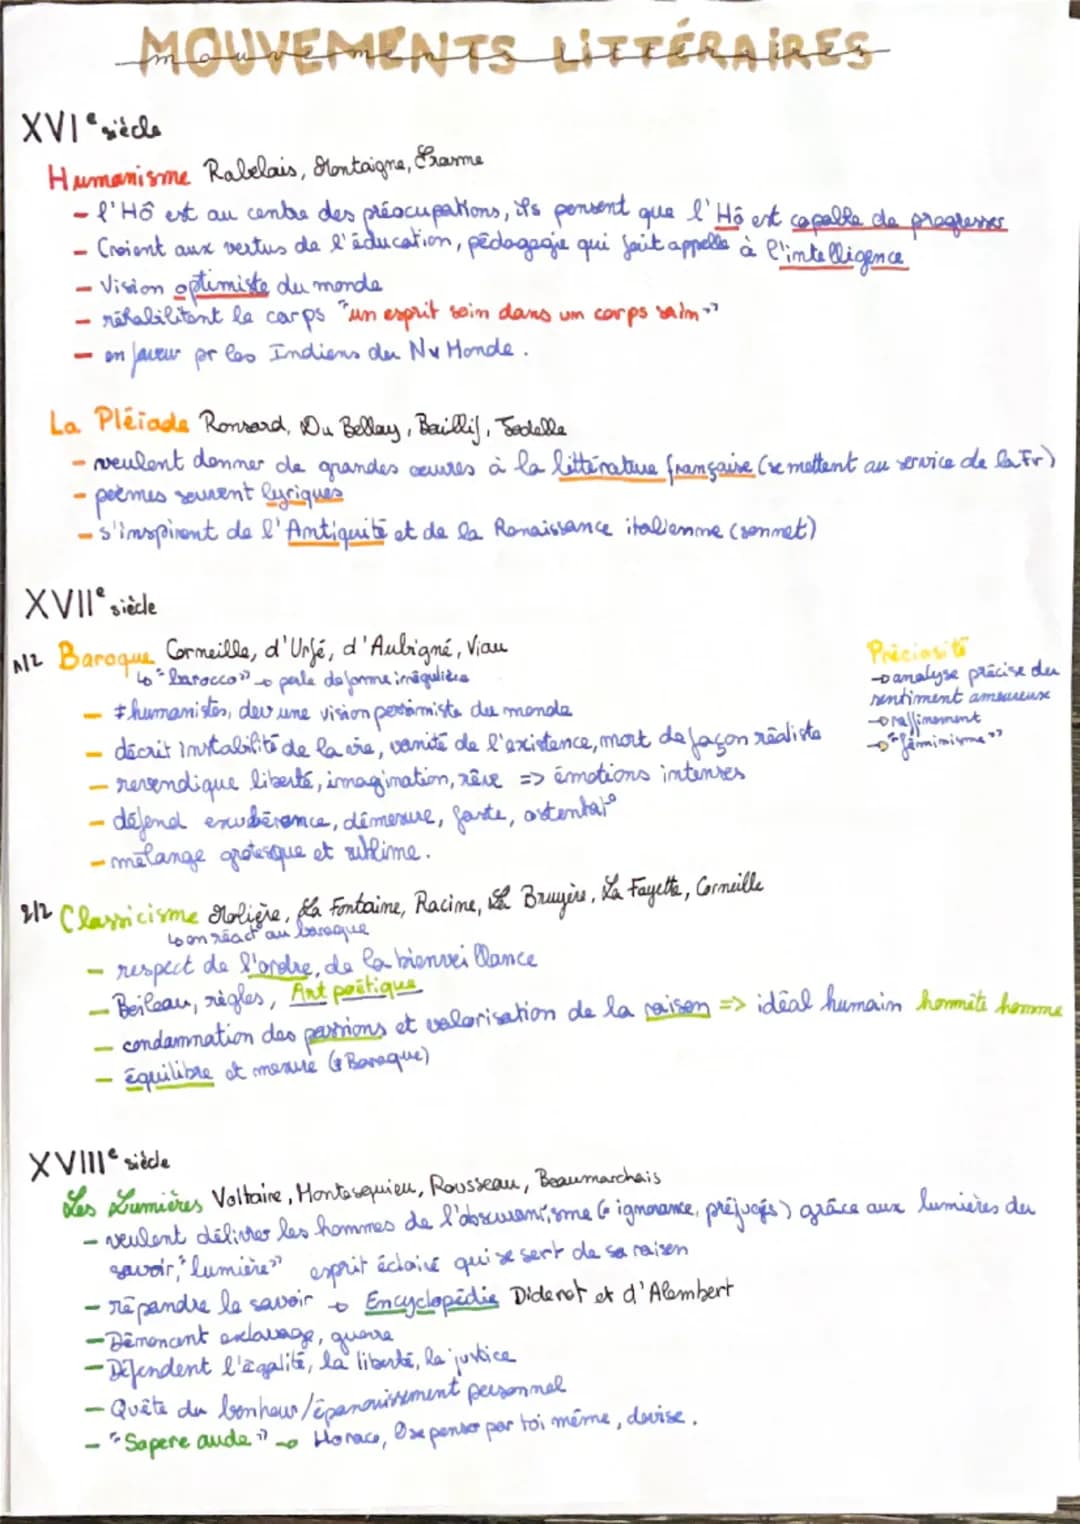 MOUVEMENTS LITTÉRAIRES
mouvements littéraires
XVIe siècle
Humanisme Rabelais, Montaigne, Erasme
- l'Hô est au centre des préocupations, ils pensent que l'Hô est capable de progresser
- Croient aux vertus de l'éducation, pédagogie qui fait appelle à l'intelligence
- Vision optimiste du monde
- réhabilitent le corps "un esprit sain dans un corps sain"
- en faveur pr les Indiens du Nv Monde.
La Pléiade Ronsard, Du Bellay, Baillif, Jodelle
- veulent donner de grandes œuvres à la littérature française (se mettent au service de la Fr)
- poèmes souvent lyriques
- s'inspirent de l'Antiquité et de la Renaissance italienne (sonnet)
XVIIe siècle
1/2 Baroque Corneille, d'Urfé, d'Aubigné, Viau
↳ "barocco" → perle de forme irrégulière
- ≠ humanistes, dev une vision pessimiste du monde
- décrit instabilité de la vie, vanité de l'existence, mort de façon réaliste
- revendique liberté, imagination, rêve => émotions intenses
- défend exubérance, démesure, faste, ostentat°
- mélange grotesque et sublime.
Préciosité
→ analyse précise du
sentiment amoureux
→ raffinement
→ "féminisme"
2/2 Classicisme Molière, La Fontaine, Racine, La Bruyère, La Fayette, Corneille
↳ en réact° au baroque
- respect de l'ordre, de la bienveillance
- Boileau, règles, Art poétique
- condamnation des passions et valorisation de la raison => idéal humain honnête homme
- équilibre et mesure (≠ Baroque)
XVIIIe siècle
Les Lumières Voltaire, Montesquieu, Rousseau, Beaumarchais
- veulent délivrer les hommes de l'obscurantisme (= ignorance, préjugés) grâce aux lumières du
savoir, "lumière" esprit éclairé qui se sert de sa raison
- répandre le savoir → Encyclopédie Diderot et d'Alembert
- Dénoncent esclavage, guerre
- Défendent l'égalité, la liberté, la justice
- Quête du bonheur/épanouissement personnel
- "Sapere aude" → Horace, Ose penser par toi même, devise.